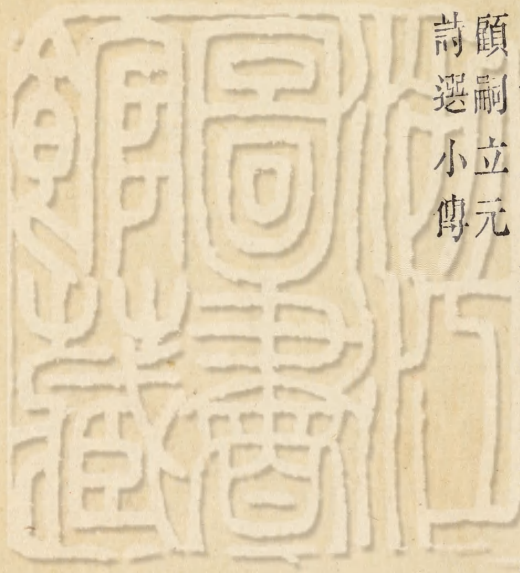 顧嗣立元
詩選小傳
浙江
圖書
館藏